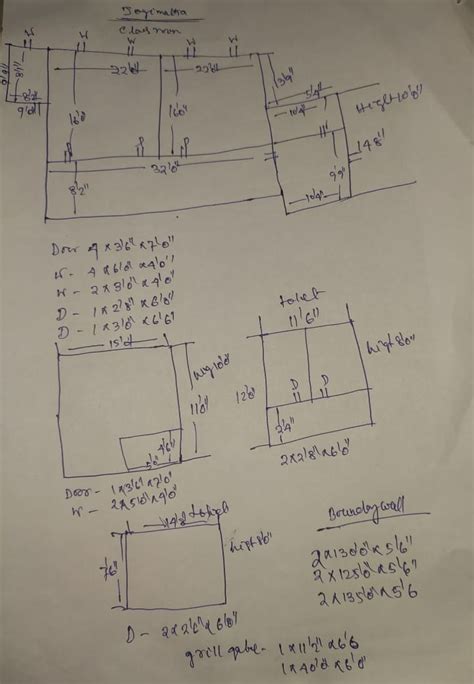 Classroom
W W W W
9'0" 8'4" 22'0" 22'0" 3'9"
8'2" 5'4"
9'0" 16'0" 16'0" 10'4" Hight 10'0"
D D D W 14'8"
32'0" 9'9"
8'2" 10'4"
Door 4 x 3'6" x 7'0"
W - 4 x 6'0" x 4'0"
W - 2 x 3'0" x 4'0"
D - 1 x 2'8" x 6'0"
D - 1 x 3'0" x 6'6"
15'0"
Hight 10'0"
11'0"
4'6"
5'0"
Door - 1 x 3'6" x 7'0"
W - 2 x 5'0" x 4'0"
toilet
11'6"
hight 8'0"
12'0"
D D
2'4"
2 x 2'8" x 6'0"
14'8" toilet
hight 8'0"
7'6"
D - 2 x 2'6" x 6'0"
Boundry wall
2 x 130'0" x 5'6"
2 x 125'0" x 5'6"
2 x 135'0" x 5'6
grill gate - 1 x 11'2" x 6'6
1 x 40'0" x 6'0"